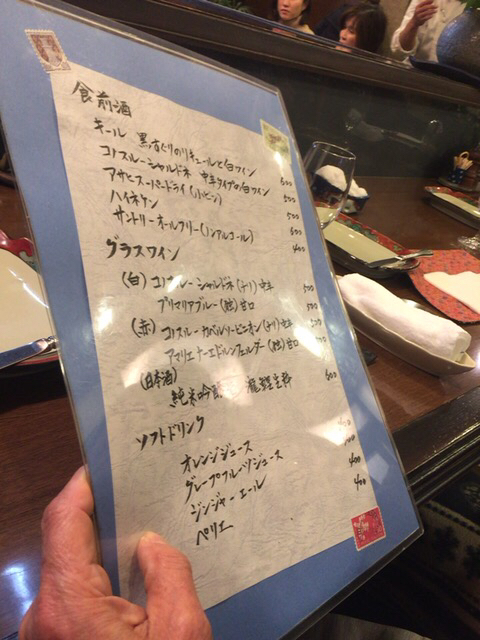 食前酒
キール 黒すぐりのリキュールと白ワイン 600
コノスルーシャルドネ 中辛タイプの白ワイン 500
アサヒスーパードライ(小ビン) 500
ハイネケン 600
サントリーオールフリー(ノンアルコール) 400
グラスワイン
(白) コノスルーシャルドネ(チリ)中辛 500
プリマリアブルー(独)甘口 500
(赤) コノスルーカベルソービニオン(チリ)中辛 500
アマリエナーエドルンフェルダー(独)甘口 500
(日本酒)
純米吟醸 600
ソフトドリンク
オレンジジュース 400
グレープフルーツジュース 400
ジンジャーエール 400
ペリエ 400